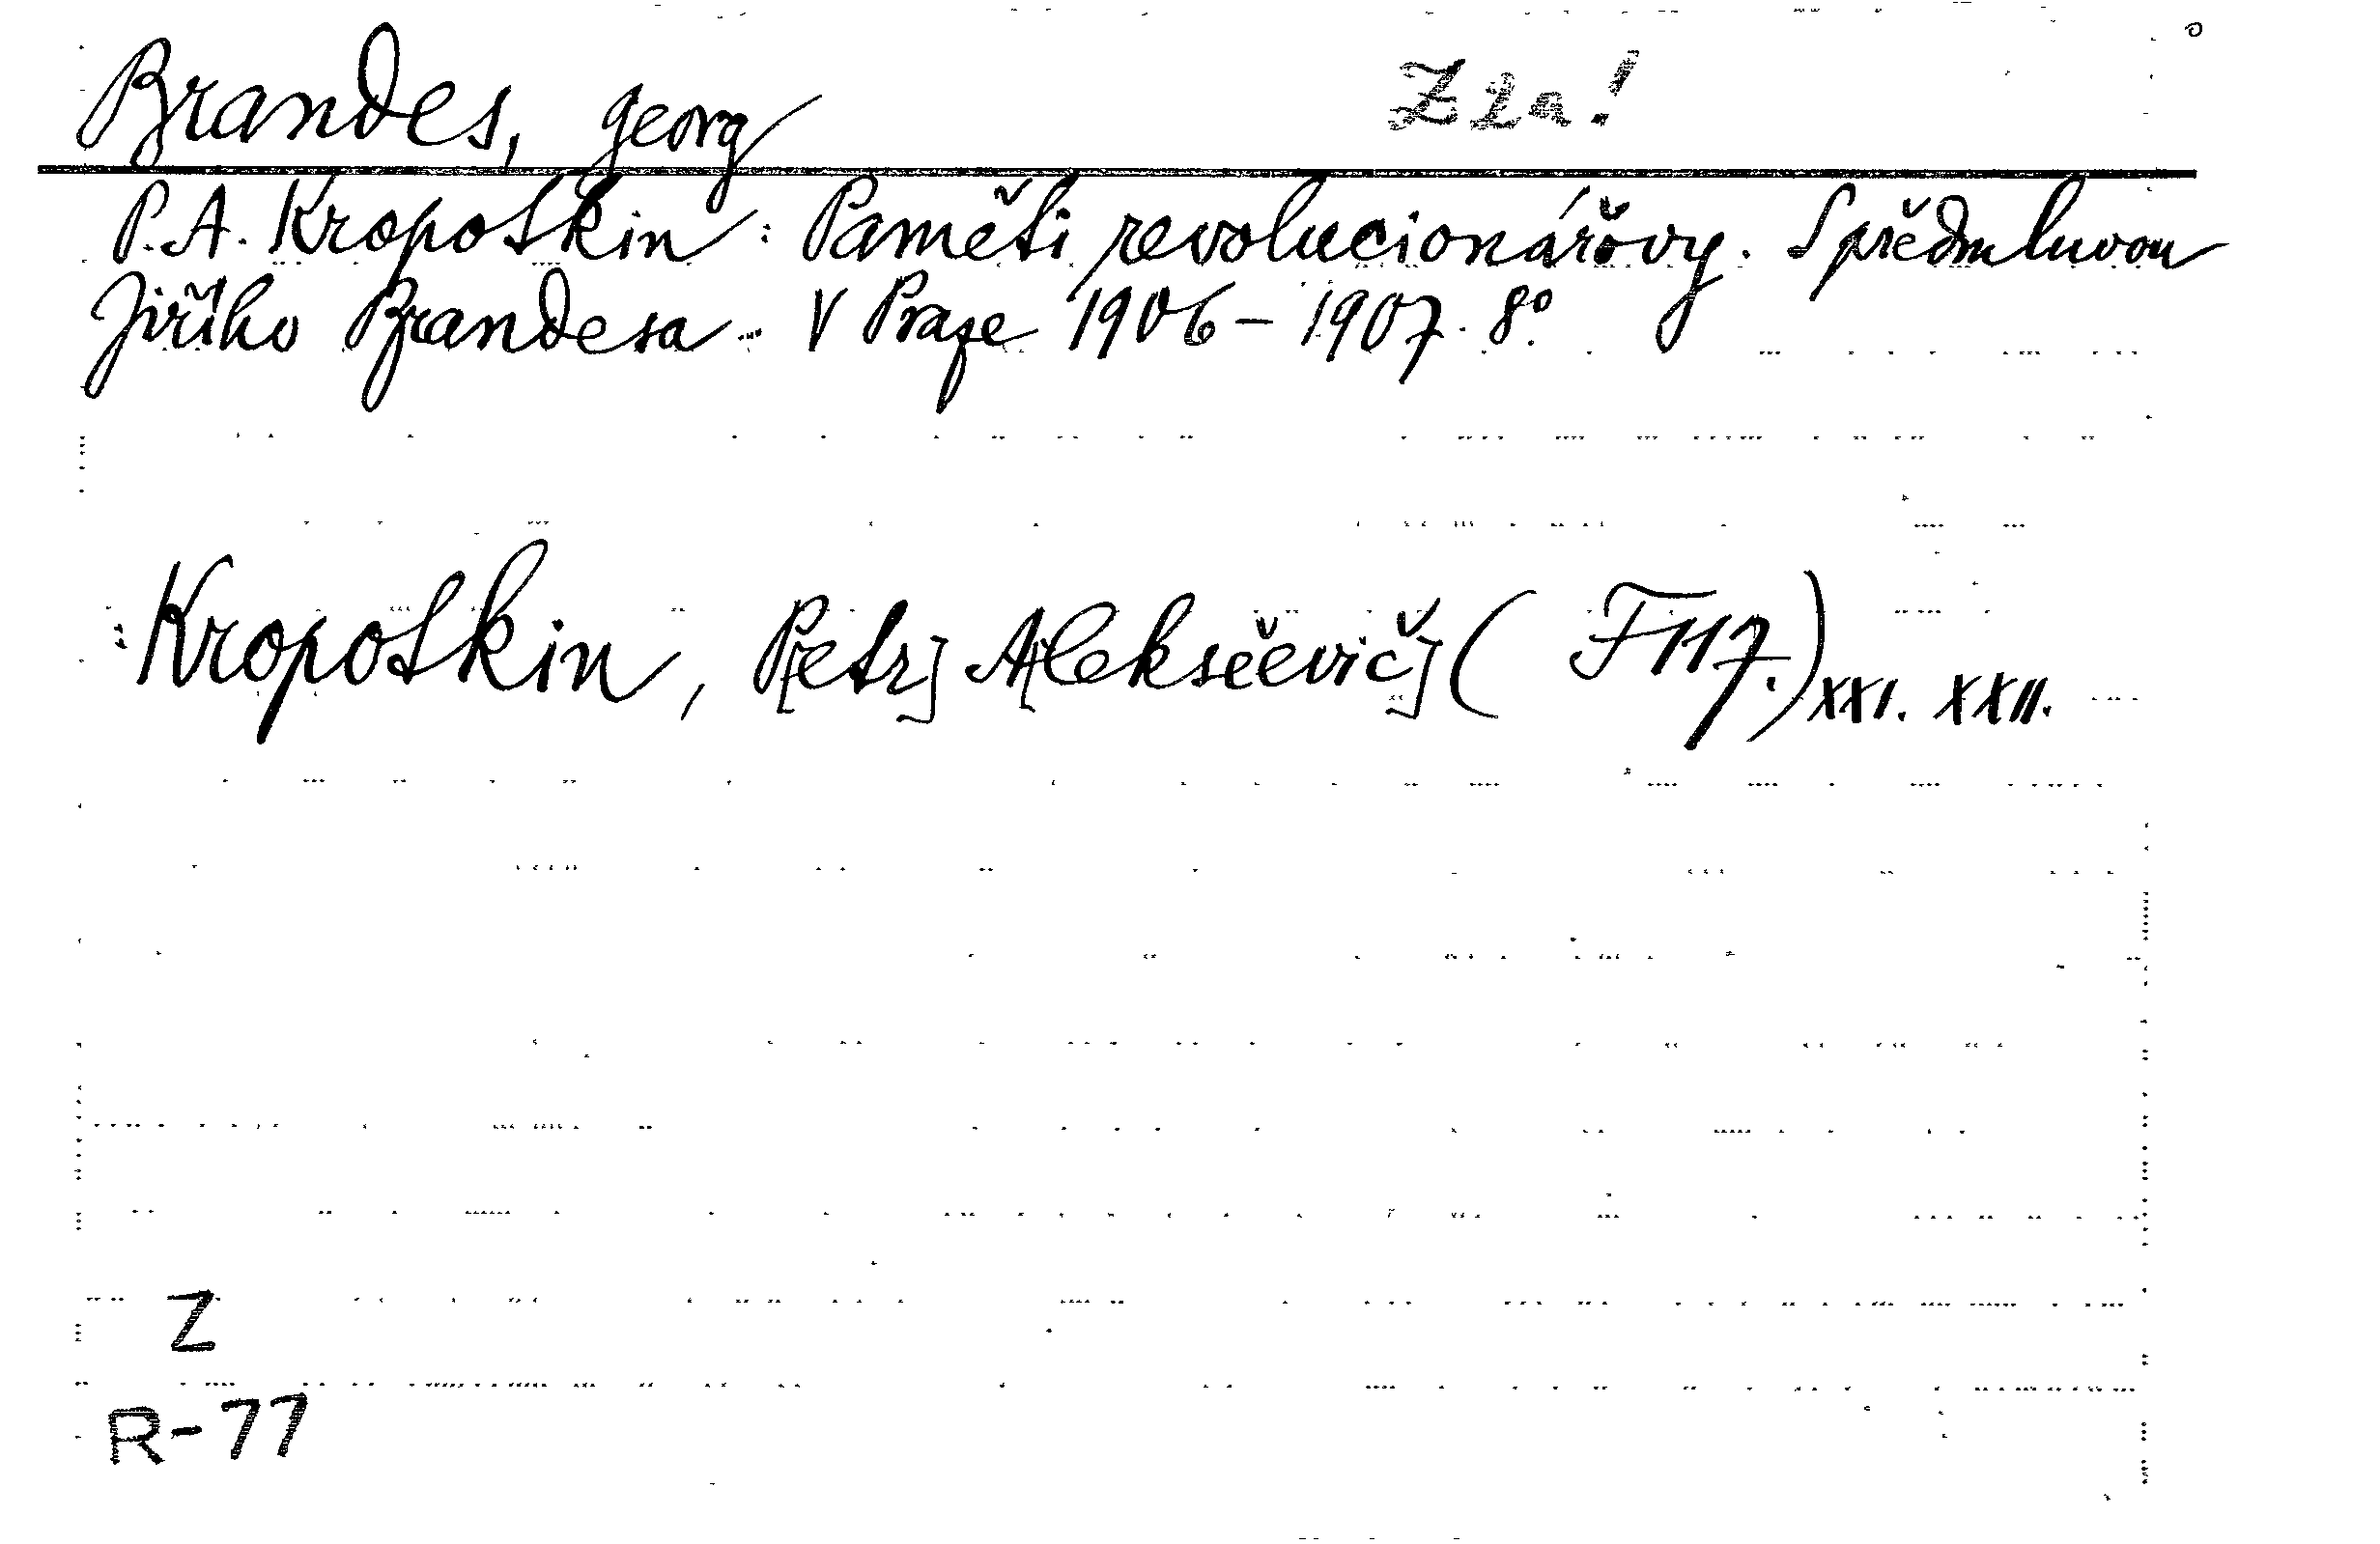 Brandes, Georg Z 2a!
P. A. Kropotkin: Paměti revolucionářovy. S předmluvou
Jiřího Brandesa. V Praze 1906–1907. 8°.
Kropotkin, P[etr] A[leksěevič] (F 117.) XXI. XXII.
Z
R-77